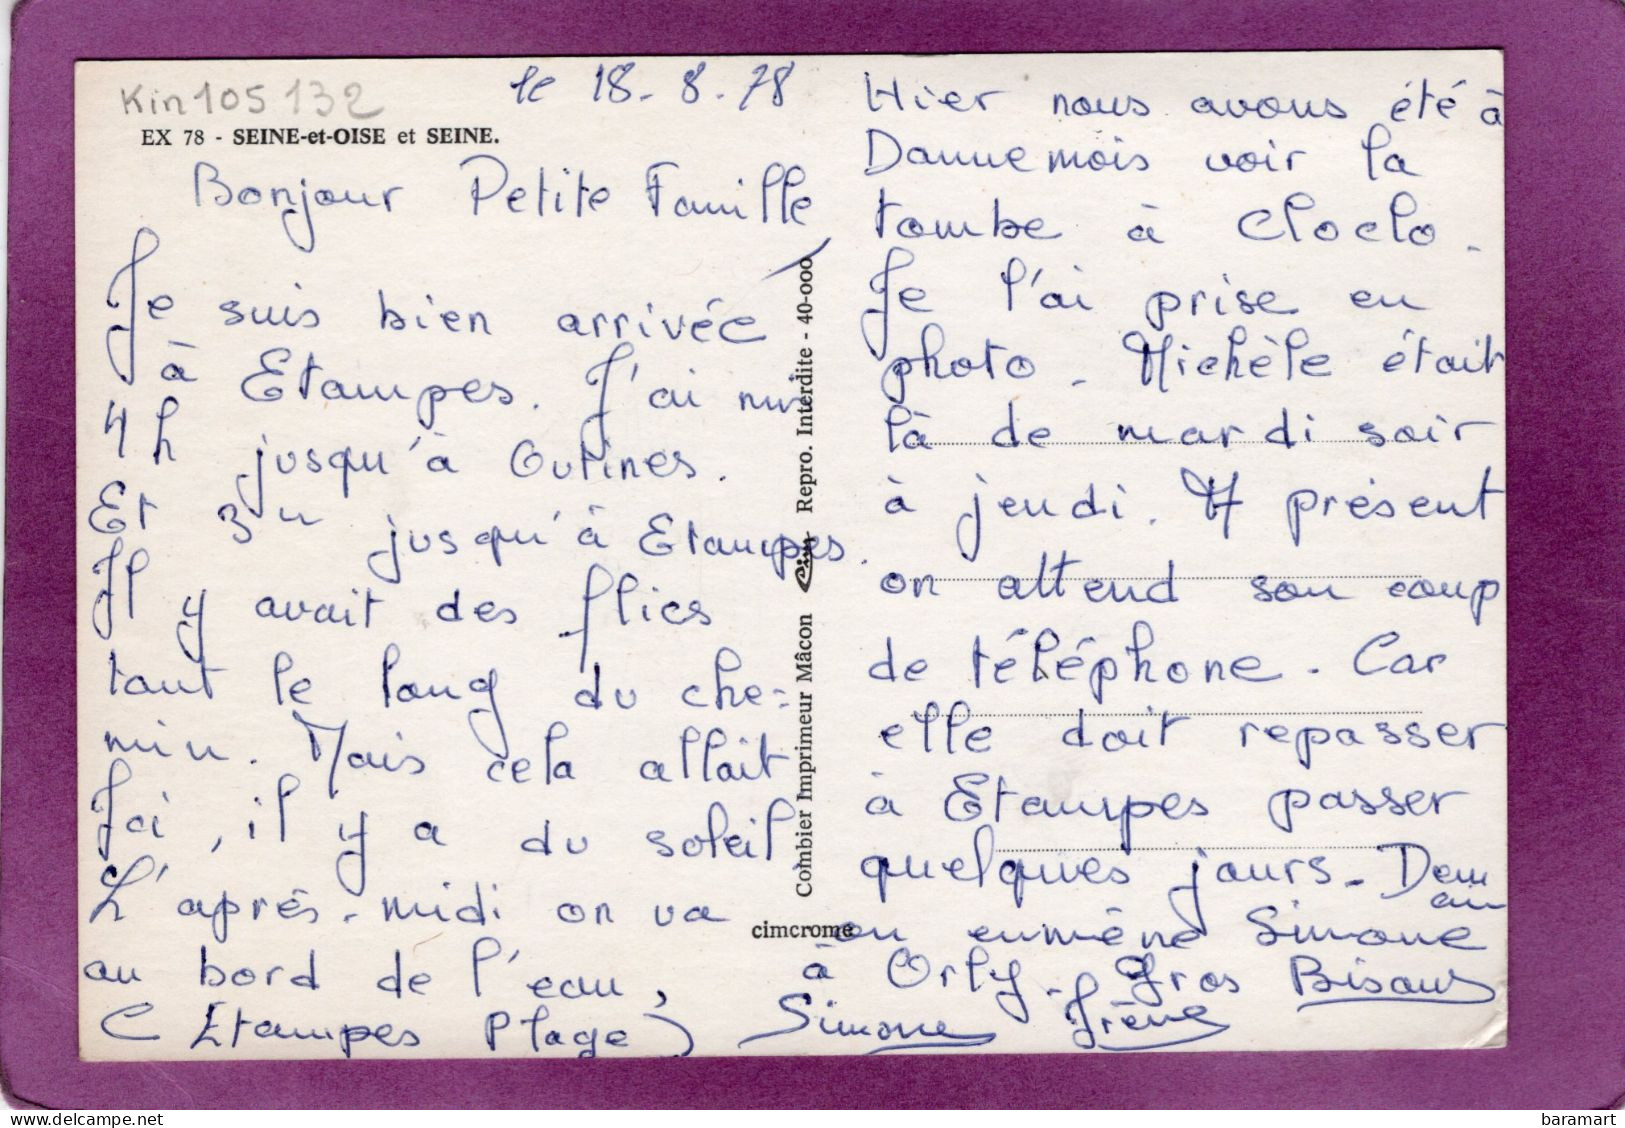 Kin 105 132
le 18-8-78
EX 78 - SEINE-et-OISE et SEINE.
Bonjour Petite Famille
Je suis bien arrivée
à Etampes. J'ai mis
4h jusqu'à Outines.
Et 3h jusqu'à Etampes.
Il y avait des flics
tout le long du che=
min. Mais cela allait
Ici, il y a du soleil
L'après-midi on va
au bord de l'eau,
(Etampes Plage)
Combier Imprimeur Mâcon Cim Repro. Interdite - 40-000
cimcrome
Hier nous avons été à
Dannemois voir la
tombe à Cloclo.
Je l'ai prise en
photo. Michèle était
là de mardi soir
à jeudi. A présent
on attend son coup
de téléphone. Car
elle doit repasser
à Etampes passer
quelques jours. Demain
on enmène Simone
à Orly. Gros Bisous
Simone Irène
delcampe.net
baramart